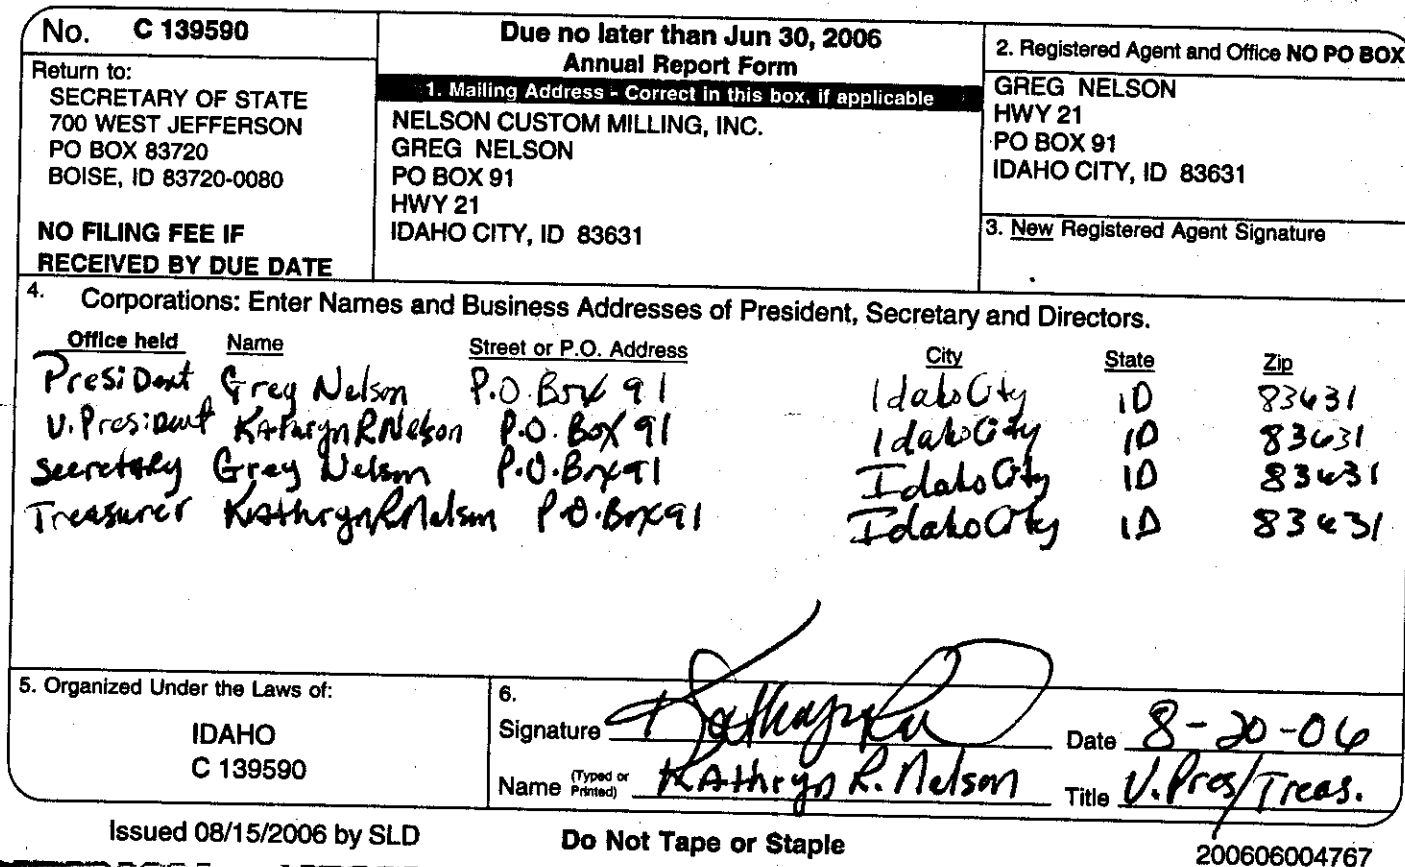 No. C 139590
Return to:
SECRETARY OF STATE
700 WEST JEFFERSON
PO BOX 83720
BOISE, ID 83720-0080
NO FILING FEE IF
RECEIVED BY DUE DATE
Due no later than Jun 30, 2006
Annual Report Form
1. Mailing Address - Correct in this box, if applicable
NELSON CUSTOM MILLING, INC.
GREG NELSON
PO BOX 91
HWY 21
IDAHO CITY, ID 83631
2. Registered Agent and Office NO PO BOX
GREG NELSON
HWY 21
PO BOX 91
IDAHO CITY, ID 83631
3. New Registered Agent Signature
4. Corporations: Enter Names and Business Addresses of President, Secretary and Directors.
Office held Name Street or P.O. Address City State Zip
President Greg Nelson P.O. Box 91 Idaho City ID 83631
V. President Kathryn R Nelson P.O. Box 91 Idaho City ID 83631
Secretary Greg Nelson P.O. Box 91 Idaho City ID 83631
Treasurer Kathryn R Nelson P.O. Box 91 Idaho City ID 83631
5. Organized Under the Laws of:
IDAHO
C 139590
6.
Signature Date 8-20-06
Name (Typed or Printed) Kathryn R. Nelson Title V. Pres/Treas.
Issued 08/15/2006 by SLD Do Not Tape or Staple 200606004767